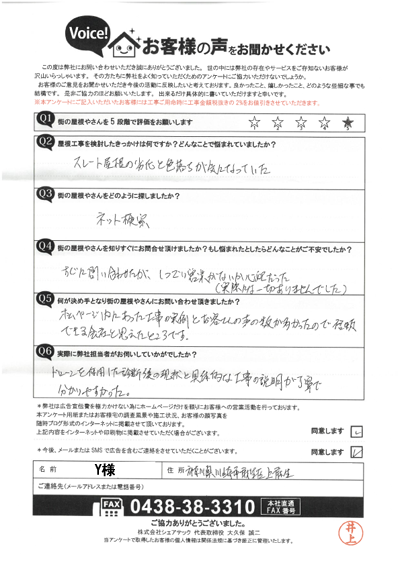 Voice!
お客様の声をお聞かせください
この度は弊社にお問い合わせいただき誠にありがとうございました。世の中には弊社の存在やサービスをご存知ないお客様が
沢山いらっしゃいます。その方たちに弊社をよく知っていただくためのアンケートにご協力いただけないでしょうか。
お客様のご意見をお聞かせいただき今後の活動に反映したいと考えております。良かったこと、嬉しかったこと、どのような些細な事でも
結構です。是非ご協力のほどお願いいたします。出来るだけ具体的に書いていただけますと幸いです。
※本アンケートにご記入いただいたお客様には工事ご用命時に工事金額税抜きの2%をお値引きさせていただきます。
Q1 街の屋根やさんを5段階で評価をお願いします ☆ ☆ ☆ ☆ ★
Q2 屋根工事を検討したきっかけは何ですか？どんなことで悩まれていましたか？
スレート屋根の劣化と色落ちが気になっていた
Q3 街の屋根やさんをどのように探しましたか？
ネット検索
Q4 街の屋根やさんを知りすぐにお問合せ頂けましたか？もし悩まれたとしたらどんなことがご不安でしたか？
すぐに問い合わせたが、しつこい営業がないか心配だった
(実際は一切ありませんでした)
Q5 何が決め手となり街の屋根やさんにお問い合わせ頂きましたか？
ホームページ内にあった工事の実例とお客さんの声の数が多かったので信頼
できる会社と思えたところです。
Q6 実際に弊社担当者がお伺いしていかがでしたか？
ドローンを使用した診断後の現状と具体的な工事の説明が丁寧で
分かりやすかった。
＊弊社は広告宣伝費を極力かけない為にホームページだけを頼りにお客様への営業活動を行っております。
本アンケート用紙またはお客様宅の調査風景や施工状況、お客様の顔写真を
随時ブログ形式でのインターネットに掲載させて頂いております。
上記内容をインターネットや印刷物に掲載させていただく場合がございます。 同意します
＊今後、メールまたはSMSで広告を含むご連絡をさせていただくことがございます。 同意します
名 前 Y様 住 所 神奈川県川崎市麻生区上麻生
ご連絡先(メールアドレスまたは電話番号)
FAX 0438-38-3310 本社直通 FAX番号
ご協力ありがとうございました。
株式会社シェアテック 代表取締役 大久保 誠二
当アンケートで取得したお客様の個人情報は関係法規に基づき厳正に管理いたします。
井上